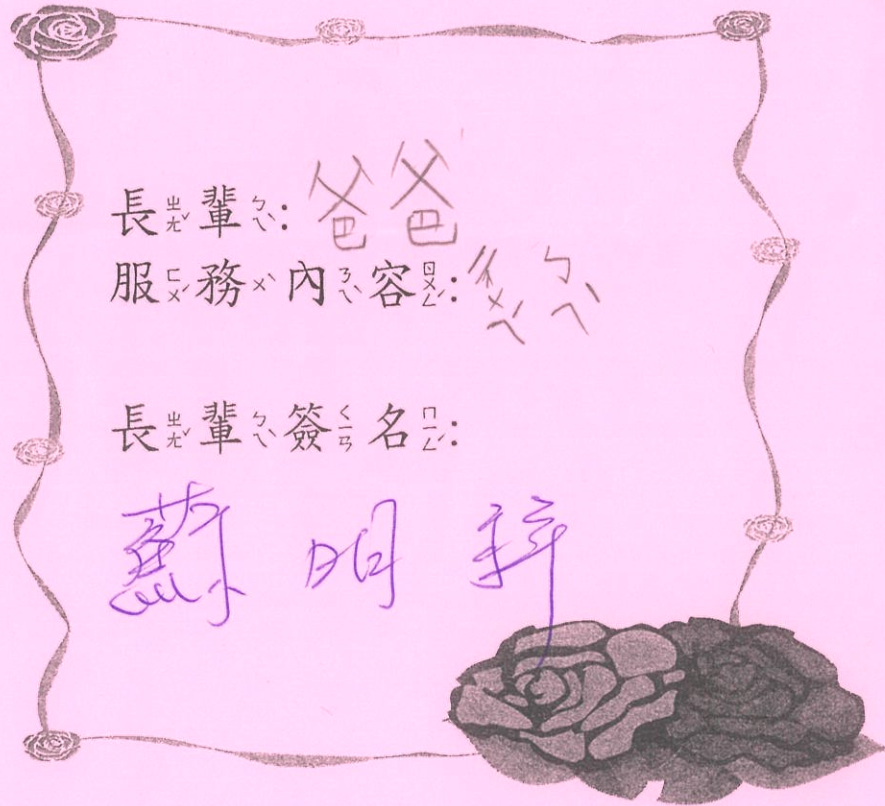 長ㄓㄤˇ輩ㄅㄟˋ:爸爸
服ㄈㄨˊ務ㄨˋ內ㄋㄟˋ容ㄖㄨㄥˊ:ㄔㄨㄟˊ ㄅㄟˋ
長ㄓㄤˇ輩ㄅㄟˋ簽ㄑㄧㄢ名ㄇㄧㄥˊ:
蘇明